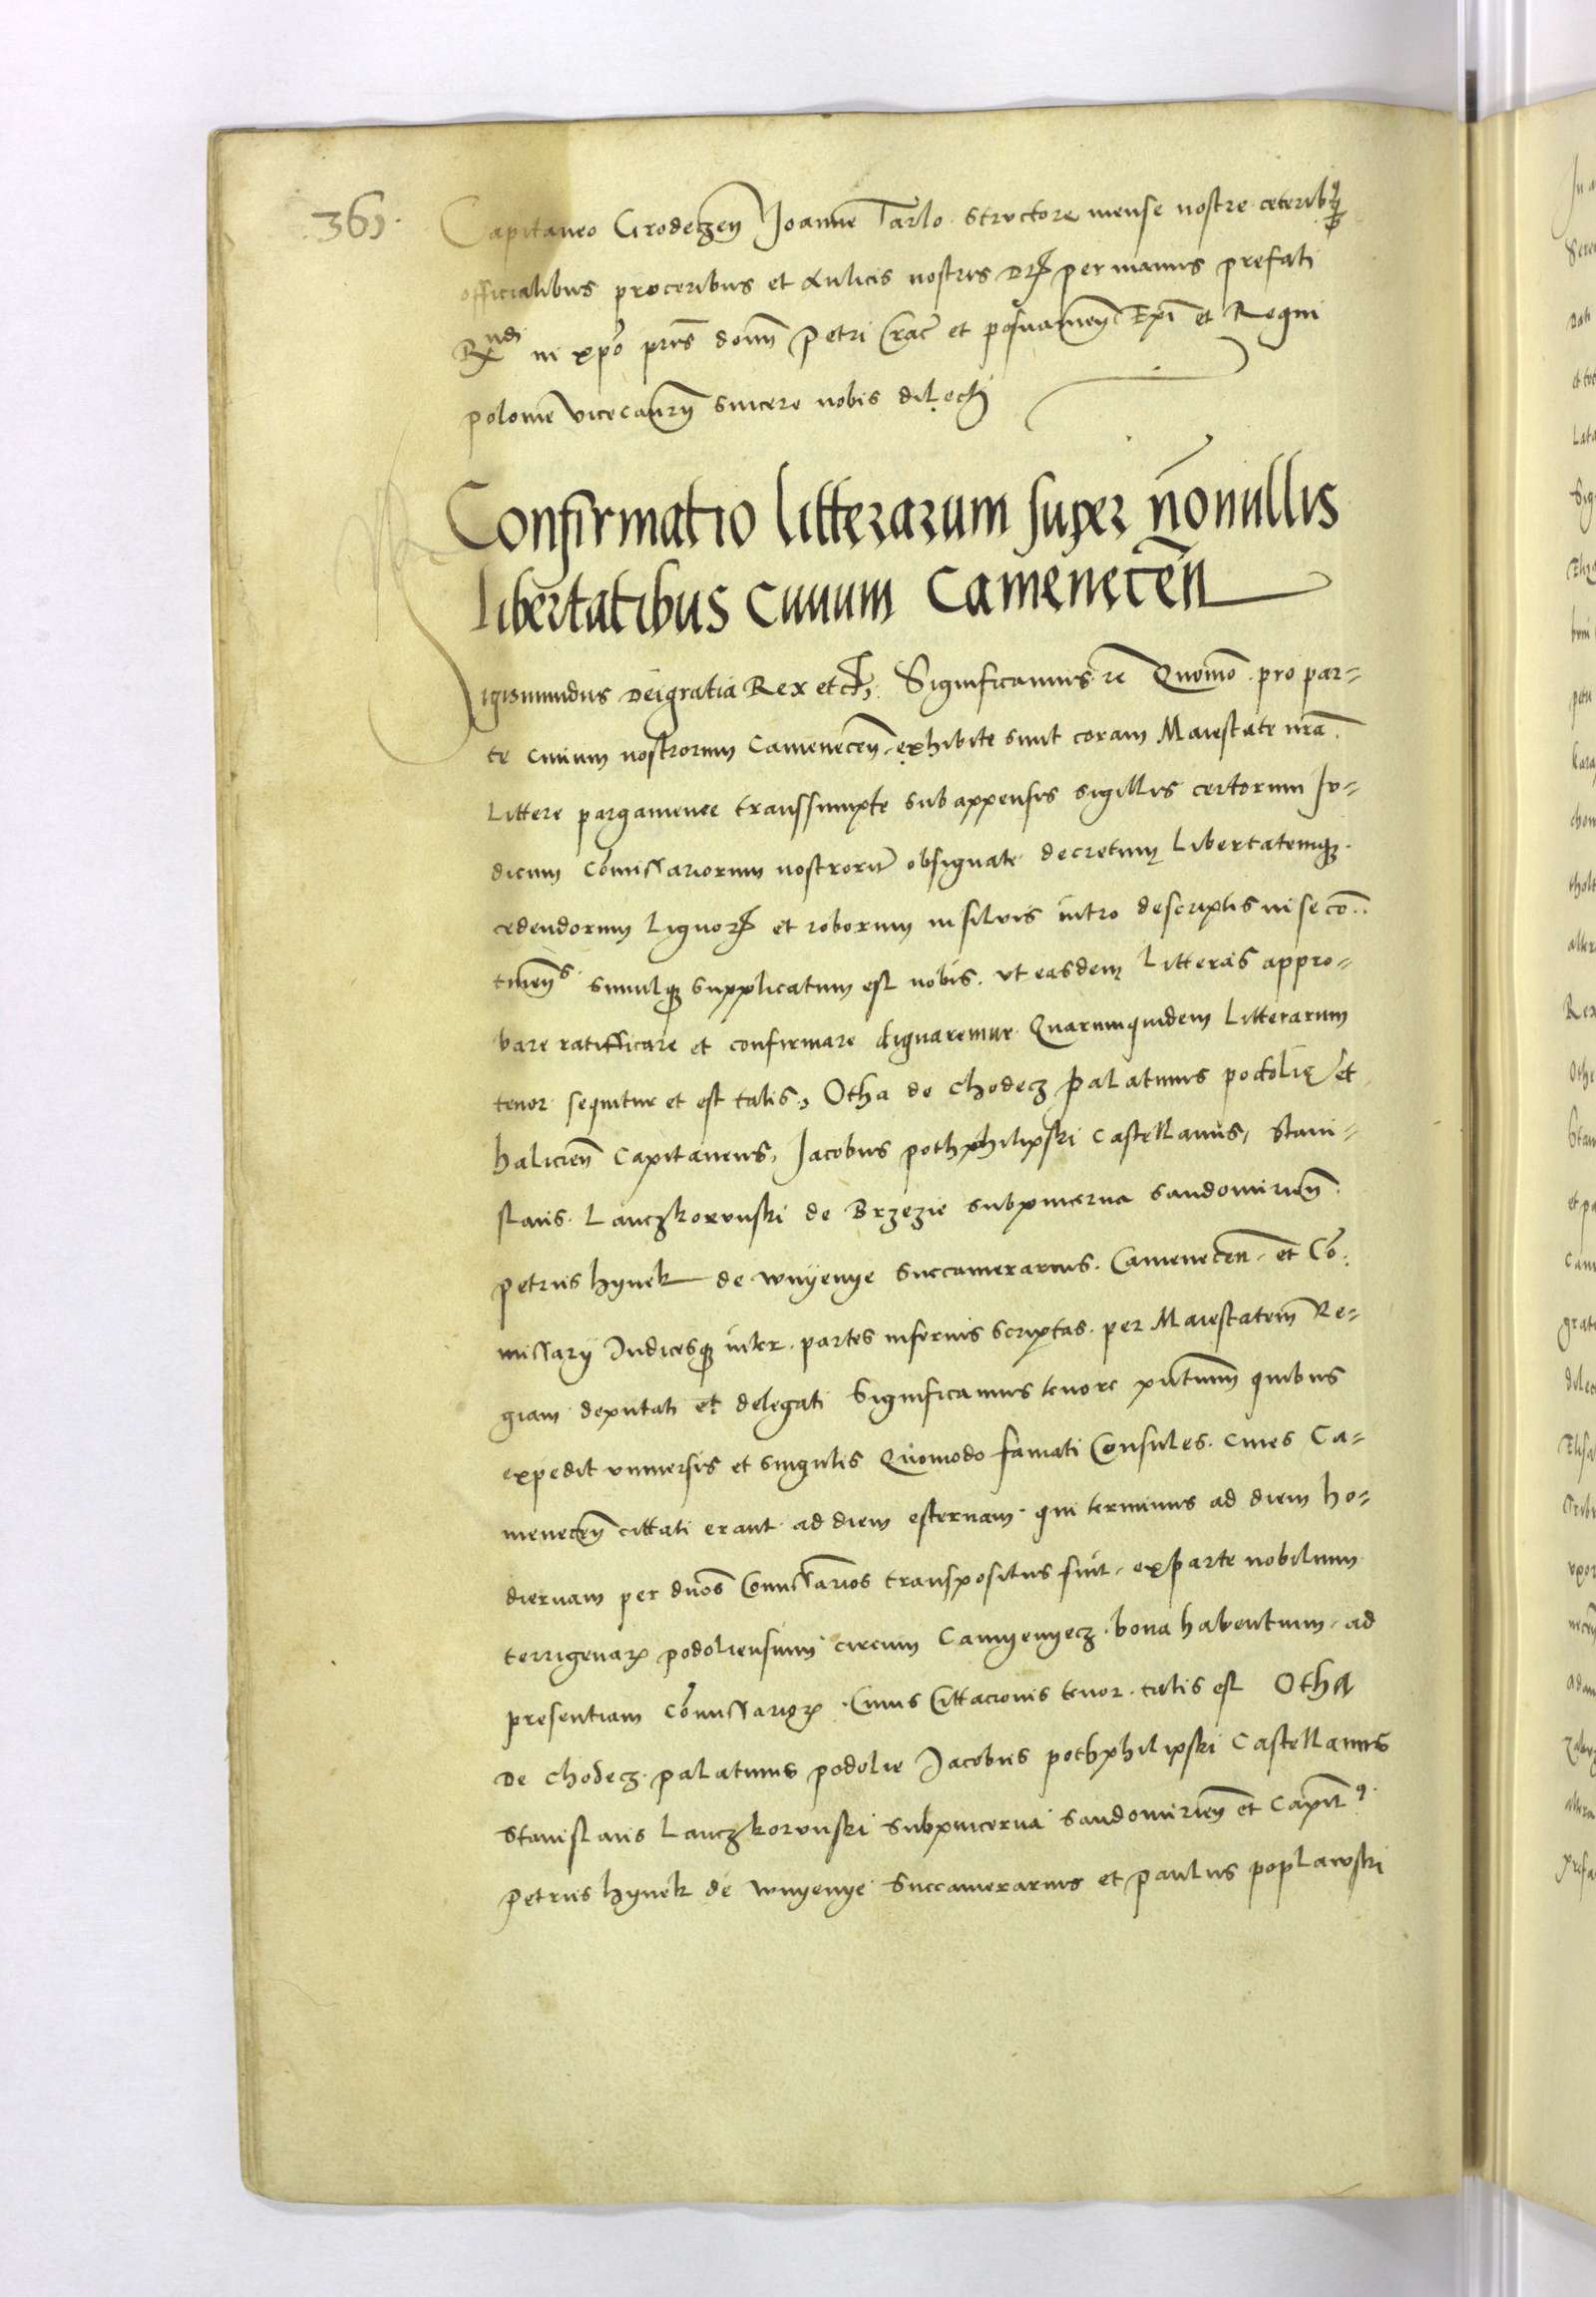 361.
Capitaneo Grodeczeñ Joanne Tarlo structore mense nostre ceteribusque
officialibus proceribus et Aulicis nostris Dꝝ per manus prefati
Rndi in xpo pris domi Petri Crac et posnaniēn Epi et Regni
polonie vicecancrij sincere nobis dilecti
Confirmatio litterarum super nōnullis
libertatibus Ciuium Camenecēn
Sigismundus Dei gratia Rex etc. Significamus rē Quomo pro par-
te ciuium nostrorum Camenecēn exhibite sunt coram Maiestate nra.
Littere pargamenee transsumpte sub appensis sigillis certorum Iu-
dicum Comissariorum nostrorum obsignate decretum Libertatemque
cedendorum Lignoꝝ et roborum in siluis intro descriptis in se con-
tinens simulque supplicatum est nobis. vt easdem Litteras appro-
bare ratifficare et confirmare dignaremur Quarumquidem Litterarum
tenor sequitur et est talis, Otha de Chodecz Palatinus podolie et
haliciēn Capitaneus, Jacobus pothphilipski Castellanus, Stani-
slaus Lanczkorunski de Brzezie subpincerna sandomiriēn
Petrus hynek de wnyenye Succamerarius Camenecēn et Co-
missarij Judicesque inter partes inferius scriptas per Maiestatem Re-
giam deputati et delegati Significamus tenore pntium quibus
expedit vniuersis et singulis Quomodo famati Consules Ciues Ca-
menecēn cittati erant ad diem esternam qui terminus ad diem ho-
diernam per dnos Comissarios transpositus fuit, ex parte nobilium
terrigenaꝝ podoliensium circum Camyenyecz bona habentium ad
presentiam Comissarioꝝ Cuius Cittacionis tenor talis est Otha
De Chodecz palatinus podolie Jacobus pothphilipski Castellanus
Stanislaus Lanczkorunski Subpincerna sandomiriēn et Capitꝰ
Petrus hynek de wnyenye Succamerarius et Paulus poplawski